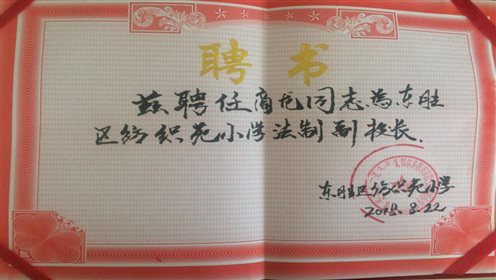 聘书
兹聘任商龙同志为东胜
区纺织苑小学法制副校长.
东胜区纺织苑小学
2018.8.22